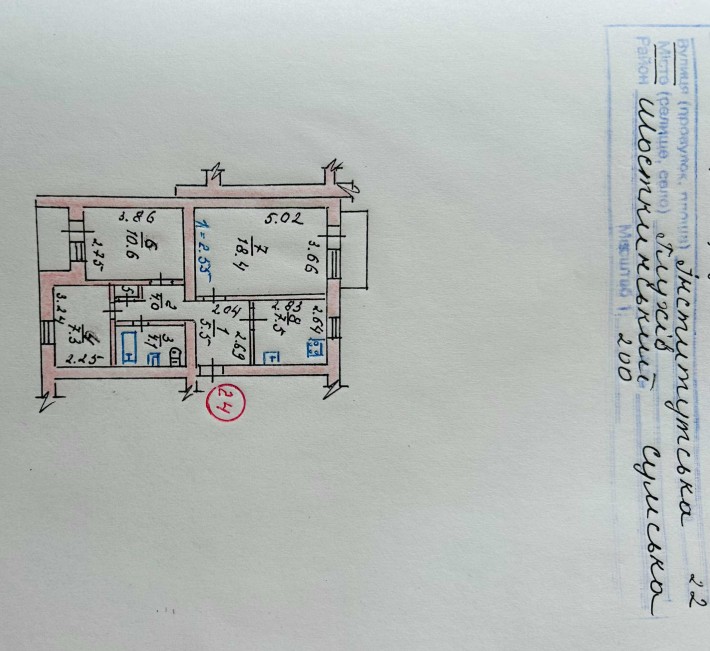 Вулиця (провулок, площа) Інститутська 22
Місто (селище, село) Глухів
Район Шосткинський Сумська
Масштаб 1: 200
3.86
6
10.6
2.75
h=2.55
5.02
7
18.4
3.66
3.24
4
7.3
2.25
5
2
7.0
3
2.04
1
5.5
2.69
2.83
8
7.5
2.64
24